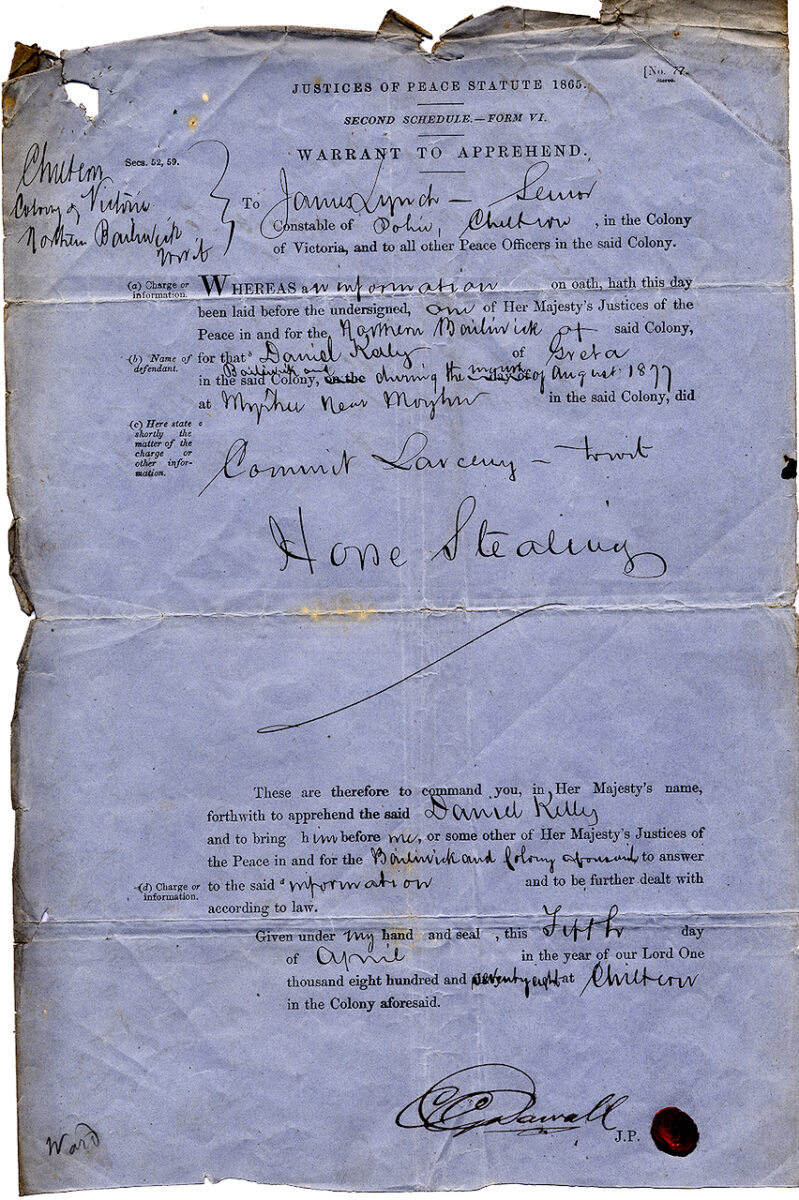 [No. 77.
JUSTICES OF PEACE STATUTE 1865.
SECOND SCHEDULE.—FORM VI.
WARRANT TO APPREHEND.
Chiltern
Secs. 52, 59.
Colony of Victoria
Northern Bailiwick
to wit
To James Lynch — Senior
Constable of Police, Chiltern, in the Colony
of Victoria, and to all other Peace Officers in the said Colony.
(a) Charge or information.
WHEREAS an information on oath, hath this day
been laid before the undersigned, one of Her Majesty's Justices of the
Peace in and for the Northern Bailiwick of said Colony,
(b) Name of defendant.
for that Daniel Kelly of Greta
Bailiwick and
in the said Colony, during the month of August 1877
at Myrhee near Moyhu in the said Colony, did
(c) Here state
shortly the
matter of the
charge or
other infor-
mation.
Commit Larceny — towit
Horse Stealing
These are therefore to command you, in Her Majesty's name,
forthwith to apprehend the said Daniel Kelly
and to bring him before me, or some other of Her Majesty's Justices of
the Peace in and for the Bailiwick and Colony aforesaid to answer
(d) Charge or information.
to the said information and to be further dealt with
according to law.
Given under my hand and seal, this Fifth day
of April in the year of our Lord One
thousand eight hundred and seventy eight at Chiltern
in the Colony aforesaid.
J.P.
Ward